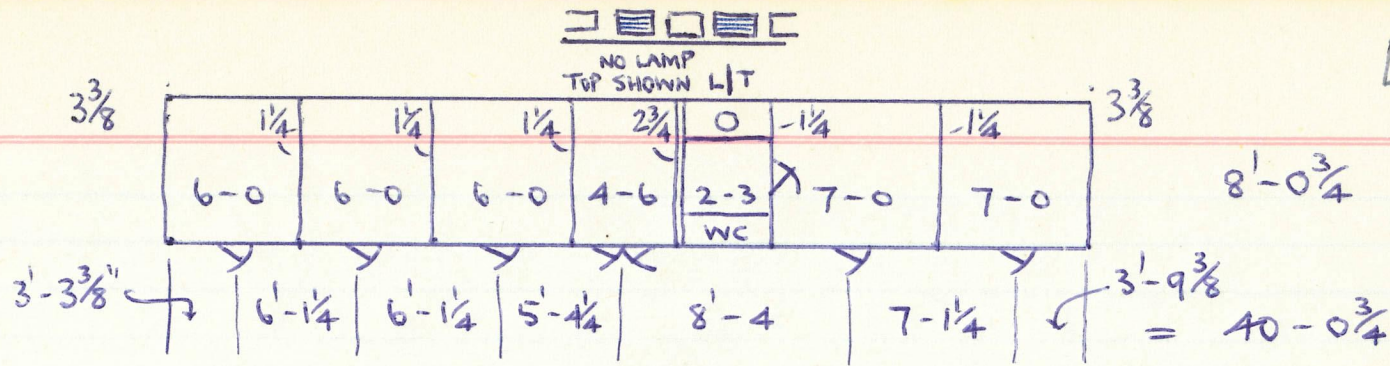 NO LAMP
TOP SHOWN L/T
3 3/8 1 1/4 1 1/4 1 1/4 2 3/4 0 -1 1/4 -1 1/4 3 3/8
6-0 6-0 6-0 4-6 2-3 7-0 7-0 8'-0 3/4
WC
3'-3 3/8" 6'-1 1/4 6'-1 1/4 5'-4 1/4 8'-4 7-1 1/4 3'-9 3/8
= 40-0 3/4